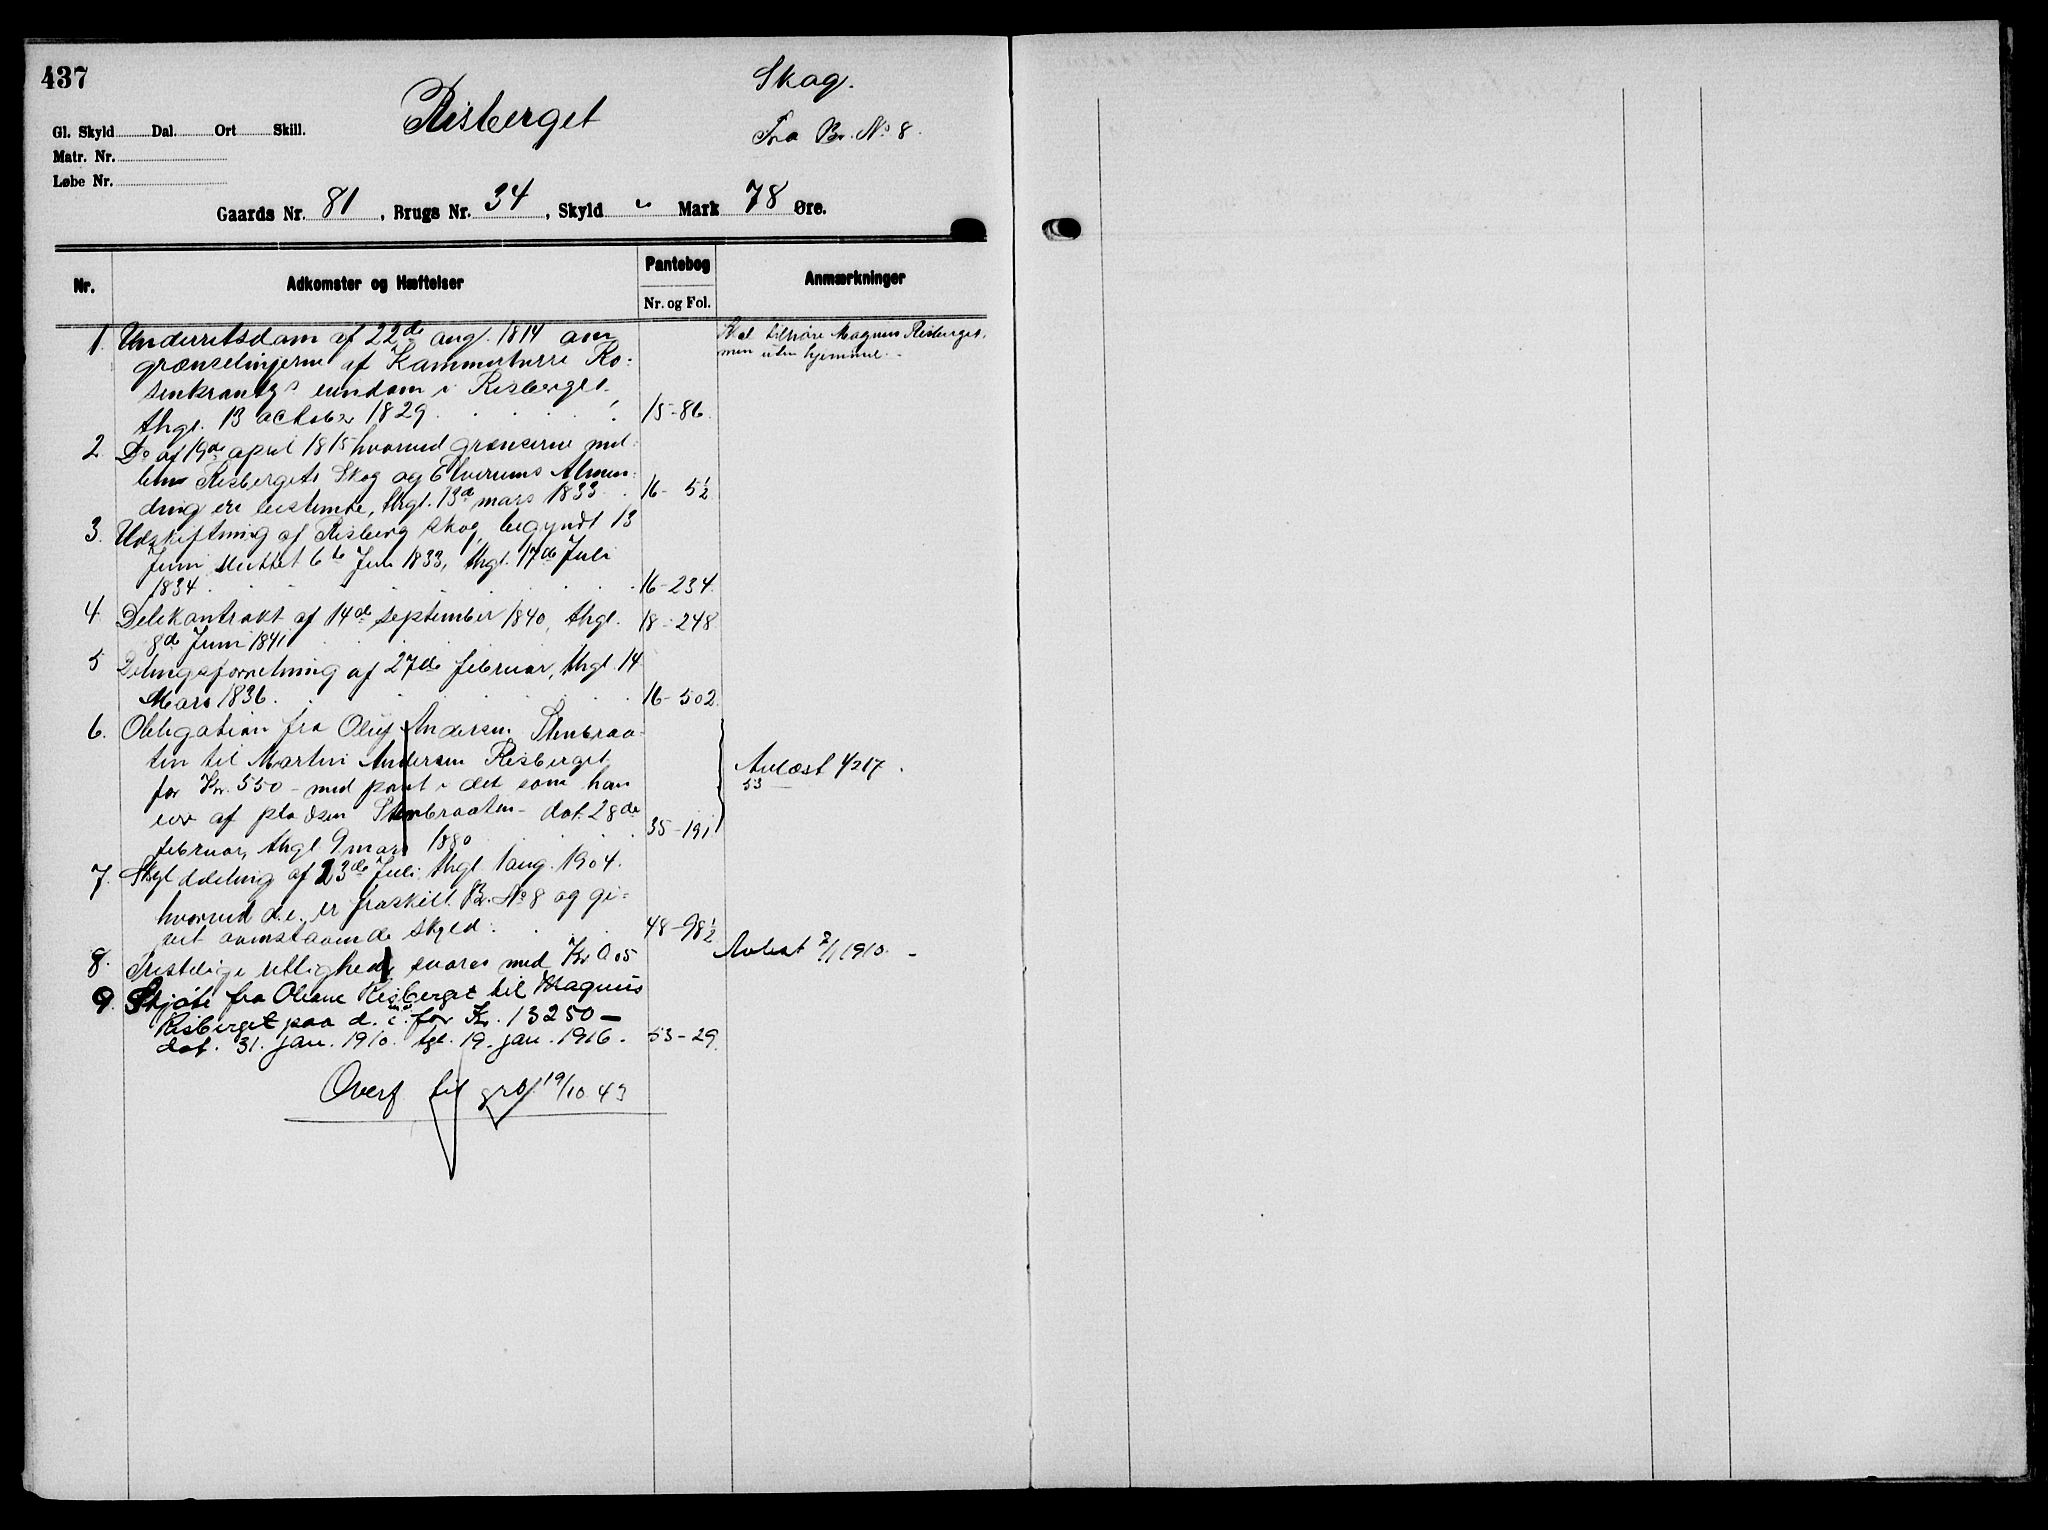 437
Risberget
Skog.
Fra Br. No 8.
Gl. Skyld Dal. Ort Skill.
Matr. Nr.
Løbe Nr.
Gaards Nr. 81, Brugs Nr. 34, Skyld " Mark 78 Øre.
Nr. Adkomster og Hæftelser Pantebog Nr. og Fol. Anmærkninger
1. Underretsdom af 22de aug. 1814 om
grænselinjerne af Kammerherre Ro-
senkrantz's eiendom i Risberget,
thgl. 13 october 1829. 15-86.
Skal tilhøre Magnus Risberget,
men uten hjemmel.-
2. Do af 19de april 1815 hvorved grænserne mel-
lem Risbergets Skog og Elverums Almen-
ding er bestemte, thgl. 13de mars 1833. 16- 5½
3. Udskiftning af Risberg skog, begyndt 13
Juni sluttet 6te Juli 1833, thgl. 17de Juli
1834. 16-234.
4. Delekontrakt af 14de september 1840, thgl.
8de Juni 1841 18-248.
5 Delingsforretning af 27de februar, thgl. 14
Mars 1836. 16-502.
6. Obligation fra Oluf Andersen Stenbraa-
ten til Martin Andersen Risberget
for Kr. 550 - med pant i det som han
eier af pladsen Stenbraaten - dat. 28de
februar, thgl 9 mars 1880 35-191
Avlæst 4/2 17.
53
7. Skyldeling af 23de Juli thgl 1 aug. 1904.
hvorved d.e. er fraskilt Br. No 8 og gi-
vet ovenstaaende skyld. 48-98½
8. Tinglige rettigheder svares med Kr 0.05
Avlæst 7/1 1910. -
9. Skjøte fra Oleane Risberget til Magnus
Risberget paa d. e. m. fl. for Kr. 13250-
dat. 31. jan. 1910. tgl. 19. jan. 1916. 53-29.
Overf til grb. 19/10 43